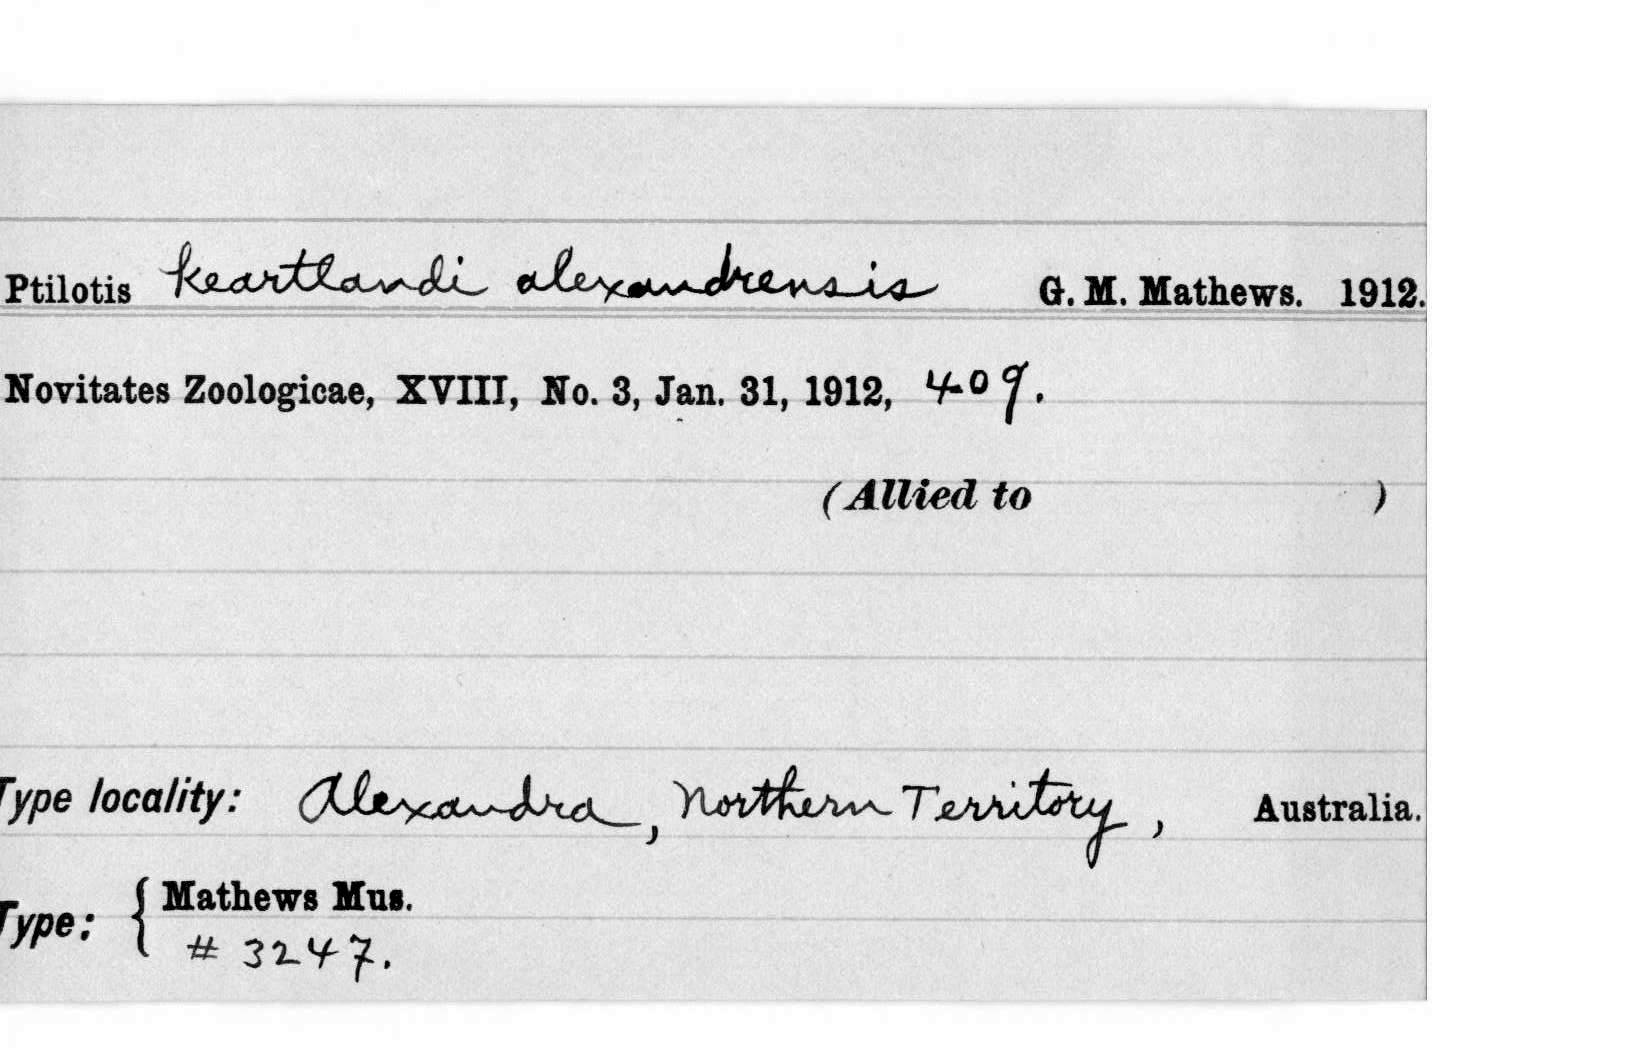 Ptilotis keartlandi alexandrensis G. M. Mathews. 1912.
Novitates Zoologicae, XVIII, No. 3, Jan. 31, 1912, 409.
(Allied to )
Type locality: Alexandra, Northern Territory, Australia.
Type: { Mathews Mus.
# 3247.